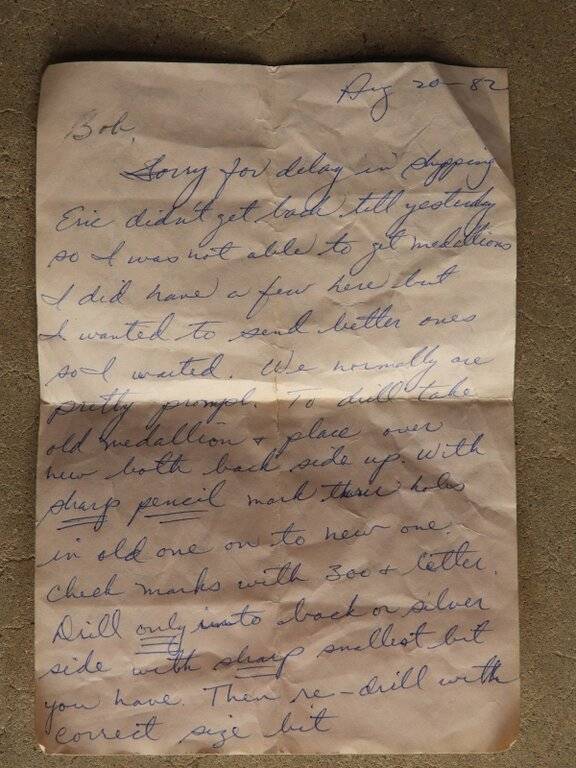 Aug 20-82
Bob,
Sorry for delay in shipping
Eric didn't get back till yesterday
so I was not able to get medallions
I did have a few here but
I wanted to send better ones
so I waited. We normally are
pretty prompt. To drill take
old medallion + place over
new both back side up. With
sharp pencil mark thru holes
in old one on to new one.
Check marks with 300+ letter.
Drill only into back or silver
side with sharp smallest bit
you have. Then re-drill with
correct size bit